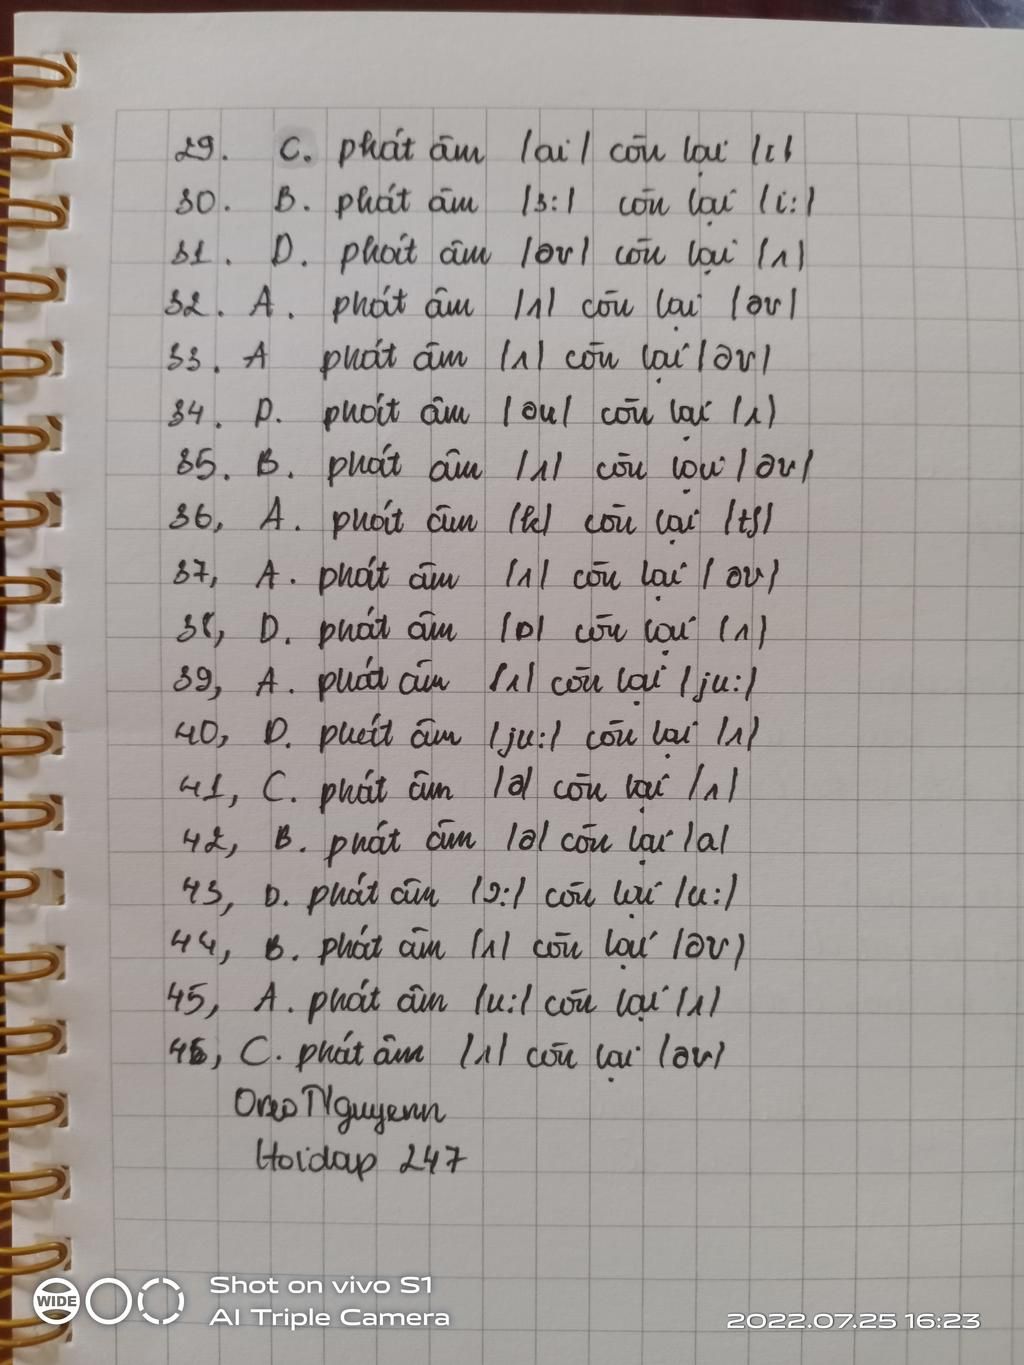 29. C. phát âm /ai/ còn lại /ɪ/
30. B. phát âm /ɜ:/ còn lại /i:/
31. D. phát âm /əʊ/ còn lại /ʌ/
32. A. phát âm /ʌ/ còn lại /əʊ/
33. A phát âm /ʌ/ còn lại /əʊ/
34. D. phát âm /əu/ còn lại /ʌ/
35. B. phát âm /ʌ/ còn lại /əʊ/
36, A. phát âm /k/ còn lại /tʃ/
37, A. phát âm /ʌ/ còn lại /əʊ/
38, D. phát âm /ɒ/ còn lại /ʌ/
39, A. phát âm /ʌ/ còn lại /ju:/
40, D. phát âm /ju:/ còn lại /ʌ/
41, C. phát âm /ə/ còn lại /ʌ/
42, B. phát âm /ə/ còn lại /a/
43, D. phát âm /ɔ:/ còn lại /u:/
44, B. phát âm /ʌ/ còn lại /əʊ/
45, A. phát âm /u:/ còn lại /ʌ/
46, C. phát âm /ʌ/ còn lại /əʊ/
OreoNguyenn
Hoidap 247
WIDE
Shot on vivo S1
AI Triple Camera
2022.07.25 16:23